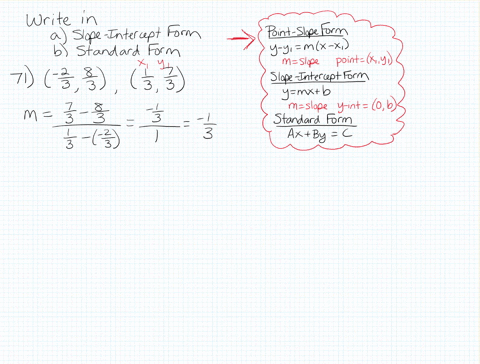 Write in
a) Slope-Intercept Form
b) Standard Form
x₁ y₁
71) (-2/3, 8/3), (1/3, 7/3)
m = (7/3 - 8/3)/(1/3 - (-2/3)) = (-1/3)/1 = -1/3
Point-Slope Form
y-y₁ = m(x-x₁)
m=slope point=(x₁,y₁)
Slope-Intercept Form
y=mx+b
m=slope y-int=(0,b)
Standard Form
Ax+By = C